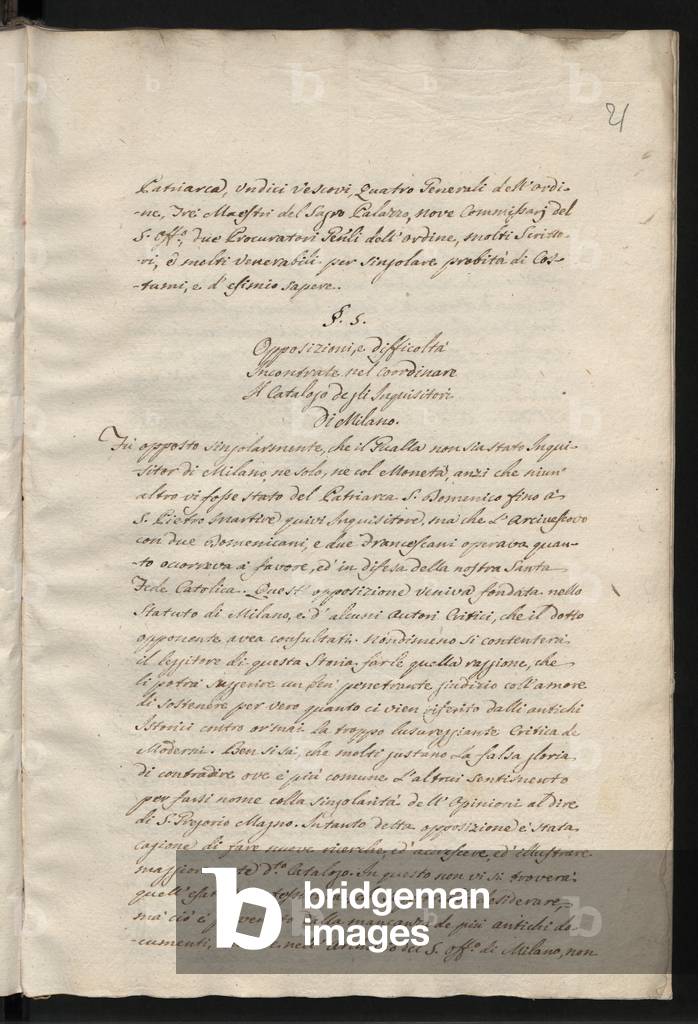 21
Patriarca, Undici Vescovi, Quatro Generali dell'ordi-
-ne, Trei Maestri del Sagro Palazzo, nove Commissarj del
S. Offo., due Procuratori Genli dell'ordine, molti Scritto-
-ri, e molti venerabili per singolare probità di Cos-
-tumi, e d'esimio sapere.
§. 5.
Opposizioni, e difficoltà
Incontrate nel coordinare
Il Catalogo degli Inquisitori
Di Milano.
Fù opposto singolarmente, che il Gualla non sia stato Inqui-
-sitor di Milano, ne solo, ne col Moneta, anzi che niun'
altro vi fosse stato del Patriarca S. Domenico fino à
S. Pietro Martire quivi Inquisitore, ma che L'Arcivescovo
con due Domenicani, e due Francescani operava quan-
-to ocorreva à favore, ed in difesa della nostra Santa
Fede Catolica. Quest'opposizione veniva fondata nello
Statuto di Milano, e d'alcuni Autori Critici, che il dotto
opponente avea consultati. Nondimeno si contenterà
il leggitore di questa Storia farle quella raggione, che
li potrà suggerire un ben penetrante giudizio coll'amore
di sostenere per vero quanto ci vien riferito dalli antichi
Istorici contro ormai la troppo lusureggiante Critica de
Moderni. Ben si sà, che molti gustano la falsa gloria
di contradire ove è più comune L'altrui sentimento
per farsi nome colla singolarità dell'Opinioni al dire
di S. Gregorio Magno. Intanto detta opposizione è stata
cagione di fare nuove ricerche, ed acrescere, ed illustrare
maggiormente dto. Catalogo. In questo non vi si troverà
quell' desiderare,
ma ciò è provenuto dalla mancanza de più antichi do-
-cumenti, S. Offo. di Milano, non
bridgeman
images